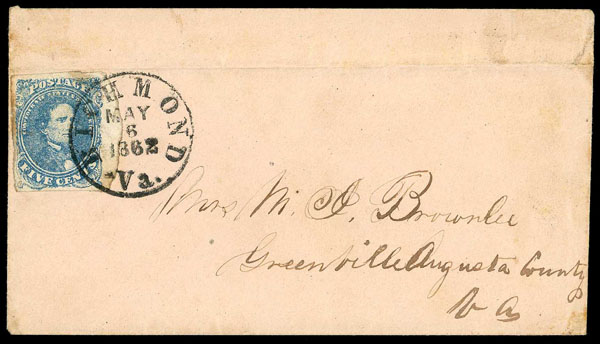 POSTAGE
CONFEDERATE STATES
FIVE CENTS
RICHMOND
MAY
6
1862
Va.
Mrs M. A. Brownlee
Greenville Augusta County
Va